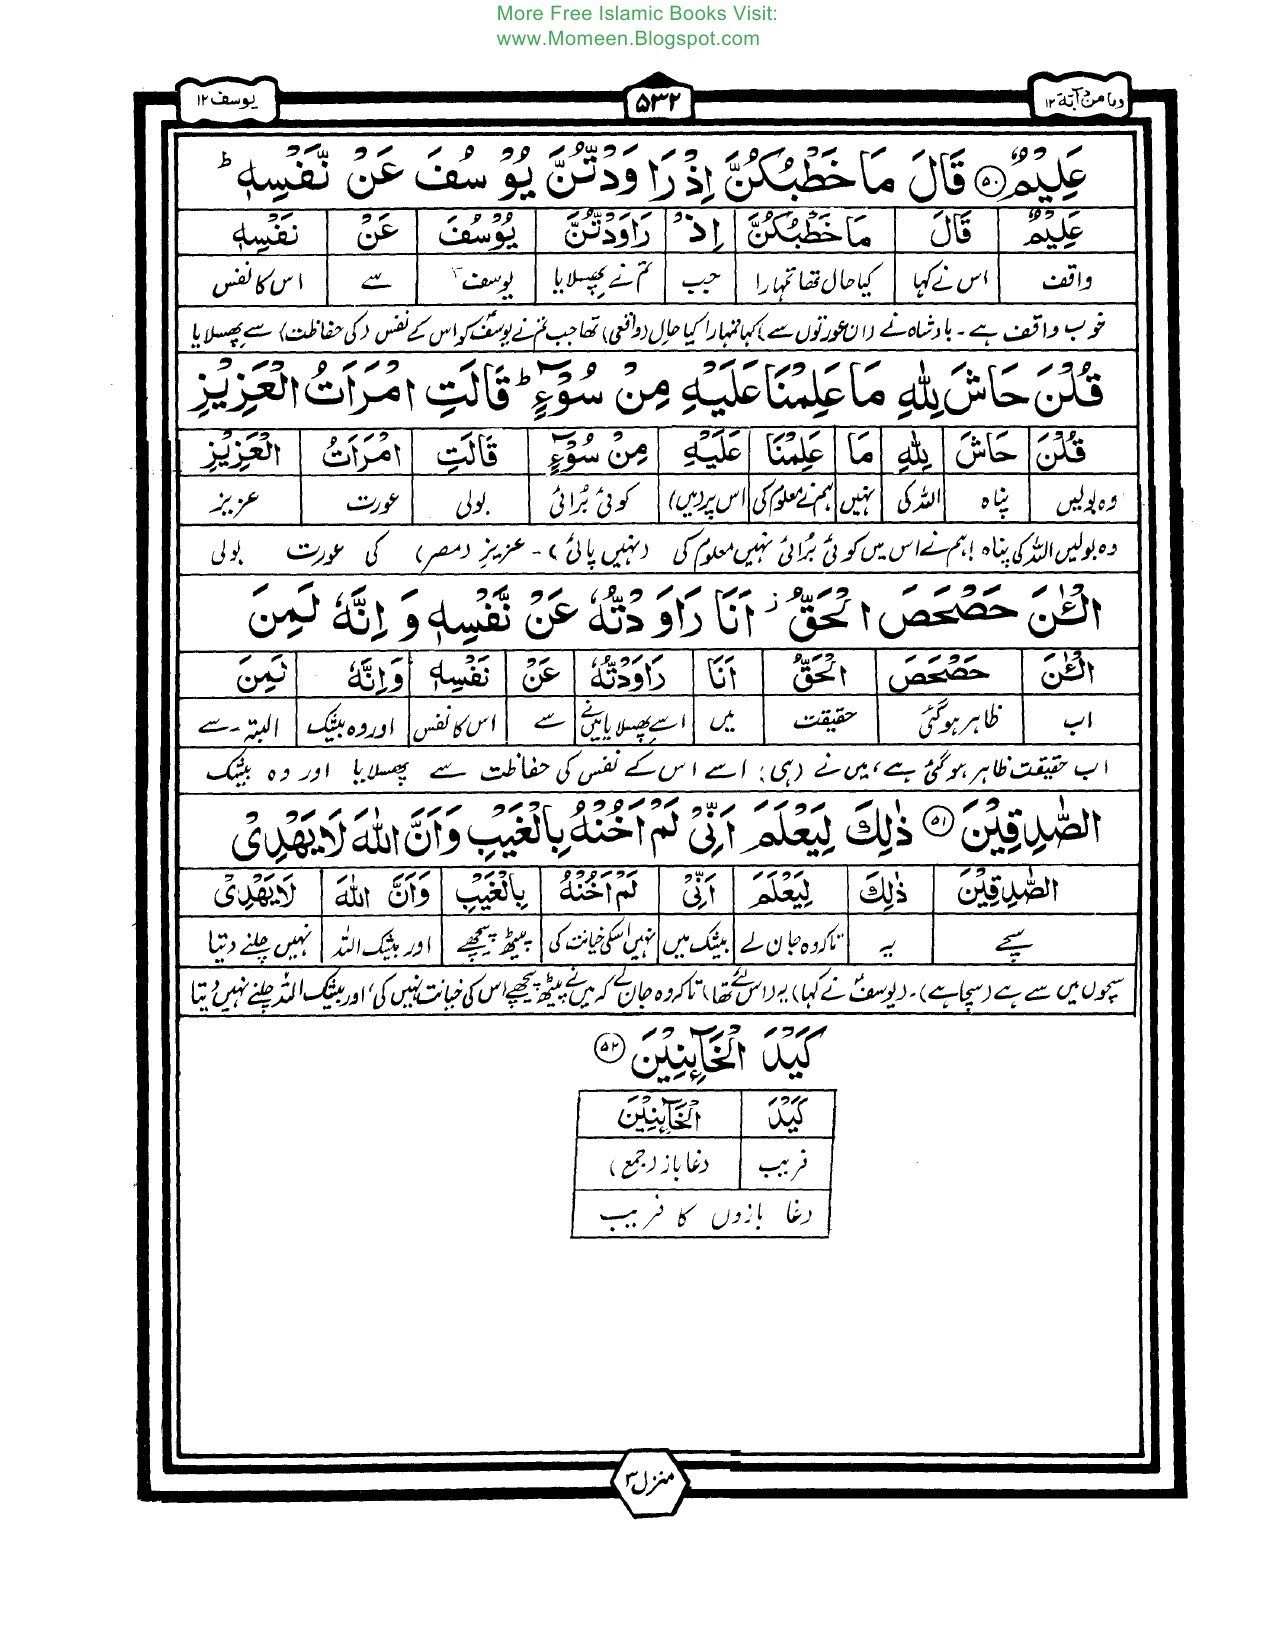 More Free Islamic Books Visit:
www.Momeen.Blogspot.com
وما من دآبة ۱۲
۵۳۲
یوسف ۱۲
عَلِيْمٌ ۝۵۰ قَالَ مَا خَطْبُكُنَّ اِذْ رَاوَدْتُّنَّ يُوْسُفَ عَنْ نَّفْسِهٖ ؕ
عَلِيْمٌ قَالَ مَا خَطْبُكُنَّ اِذْ رَاوَدْتُنَّ يُوْسُفَ عَنْ نَفْسِهٖ
واقف اس نے کہا کیا حال تھا تمہارا جب تم نے پھسلایا یوسف سے اس کا نفس
خوب واقف ہے۔ بادشاہ نے (ان عورتوں سے) کہا تمہارا کیا حال (واقعی) تھا جب تم نے یوسفؑ کو اس کے نفس (کی حفاظت) سے پھسلایا
قُلْنَ حَاشَ لِلّٰهِ مَا عَلِمْنَا عَلَيْهِ مِنْ سُوْٓءٍ ؕ قَالَتِ امْرَاَتُ الْعَزِيْزِ
قُلْنَ حَاشَ لِلّٰهِ مَا عَلِمْنَا عَلَيْهِ مِنْ سُوْٓءٍ قَالَتِ امْرَاَتُ الْعَزِيْزِ
وہ بولیں پناہ اللہ کی نہیں ہم نے معلوم کی اس پر (میں) کوئی بُرائی بولی عورت عزیز
وہ بولیں اللہ کی پناہ! ہم نے اس میں کوئی بُرائی نہیں معلوم کی (نہیں پائی)۔ عزیزِ (مصر) کی عورت بولی
الْـٰٔنَ حَصْحَصَ الْحَقُّ ؗ اَنَا رَاوَدْتُّهٗ عَنْ نَّفْسِهٖ وَ اِنَّهٗ لَمِنَ
الْـٰٔنَ حَصْحَصَ الْحَقُّ اَنَا رَاوَدْتُهٗ عَنْ نَفْسِهٖ وَاِنَّهٗ لَمِنَ
اب ظاہر ہوگئی حقیقت میں اسے پھسلایا میں نے سے اس کا نفس اور وہ بیشک البتہ۔سے
اب حقیقت ظاہر ہوگئی ہے، میں نے (ہی) اسے اس کے نفس کی حفاظت سے پھسلایا اور وہ بیشک
الصّٰدِقِيْنَ ۝۵۱ ذٰلِكَ لِيَعْلَمَ اَنِّيْ لَمْ اَخُنْهُ بِالْغَيْبِ وَاَنَّ اللّٰهَ لَا يَهْدِيْ
الصّٰدِقِيْنَ ذٰلِكَ لِيَعْلَمَ اَنِّيْ لَمْ اَخُنْهُ بِالْغَيْبِ وَاَنَّ اللّٰهَ لَا يَهْدِيْ
سچے یہ تاکہ وہ جان لے بیشک میں نہیں اسکی خیانت کی پیٹھ پیچھے اور بیشک اللہ نہیں چلنے دیتا
سچوں میں سے ہے (سچا ہے)۔ (یوسفؑ نے کہا) یہ (اس لئے تھا) تاکہ وہ جان لے کہ میں نے پیٹھ پیچھے اس کی خیانت نہیں کی، اور بیشک اللہ چلنے نہیں دیتا
كَيْدَ الْخَآئِنِيْنَ ۝۵۲
كَيْدَ الْخَآئِنِيْنَ
فریب دغا باز (جمع)
دغا بازوں کا فریب
منزل ۳